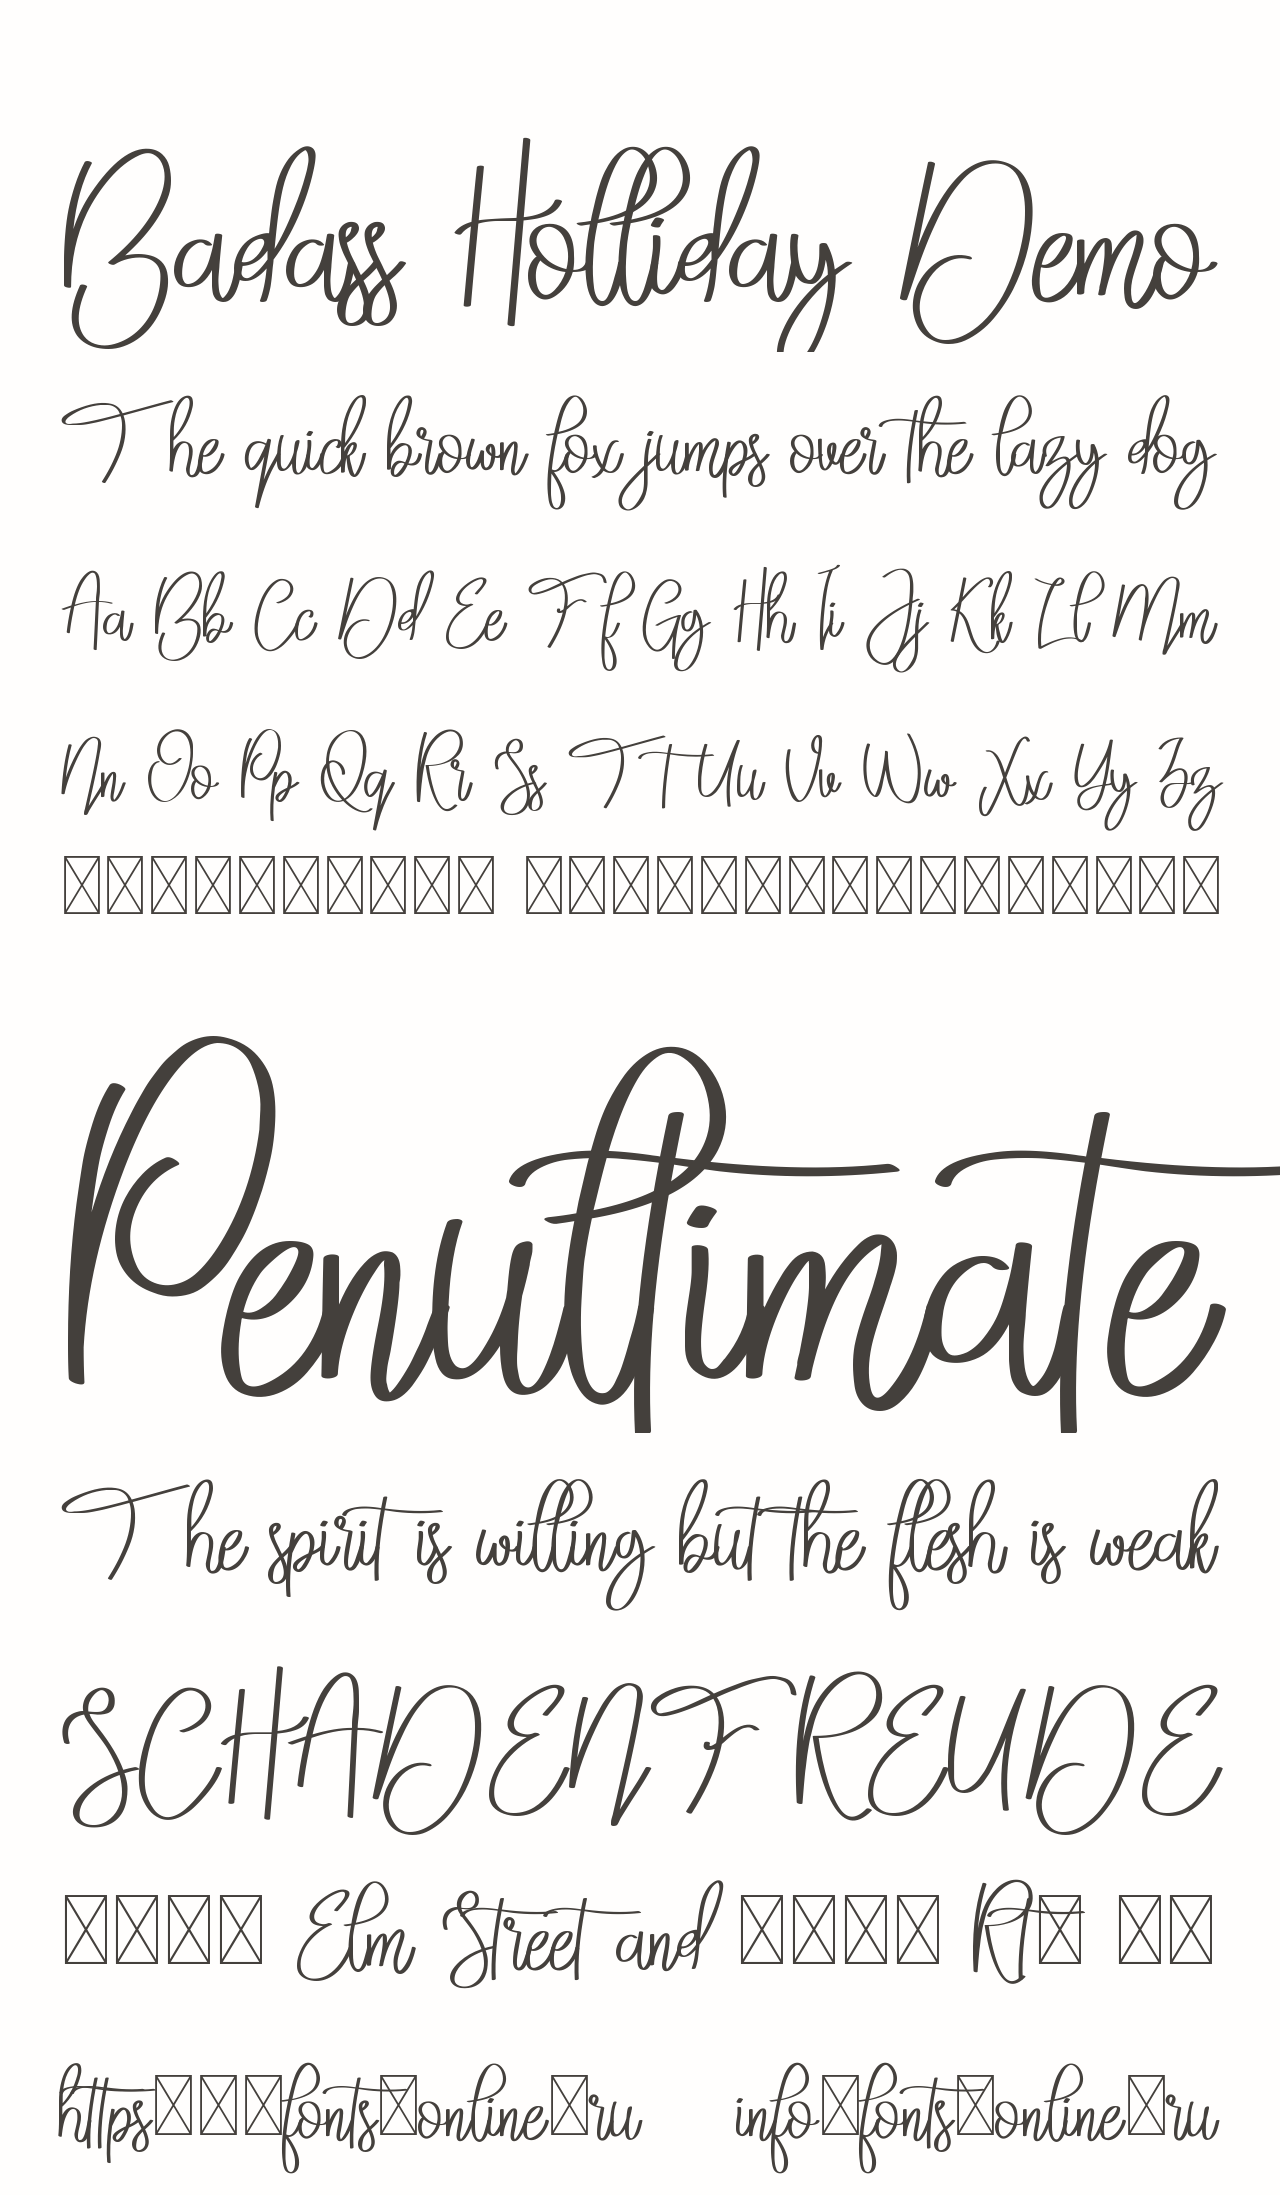 Badass Holliday Demo
The quick brown fox jumps over the lazy dog
Aa Bb Cc Dd Ee Ff Gg Hh Ii Jj Kk Ll Mm
Nn Oo Pp Qq Rr Ss Tt Uu Vv Ww Xx Yy Zz
Penultimate
The spirit is willing but the flesh is weak
SCHADENFREUDE
Elm Street and Rt
https fonts online ru info fonts online ru